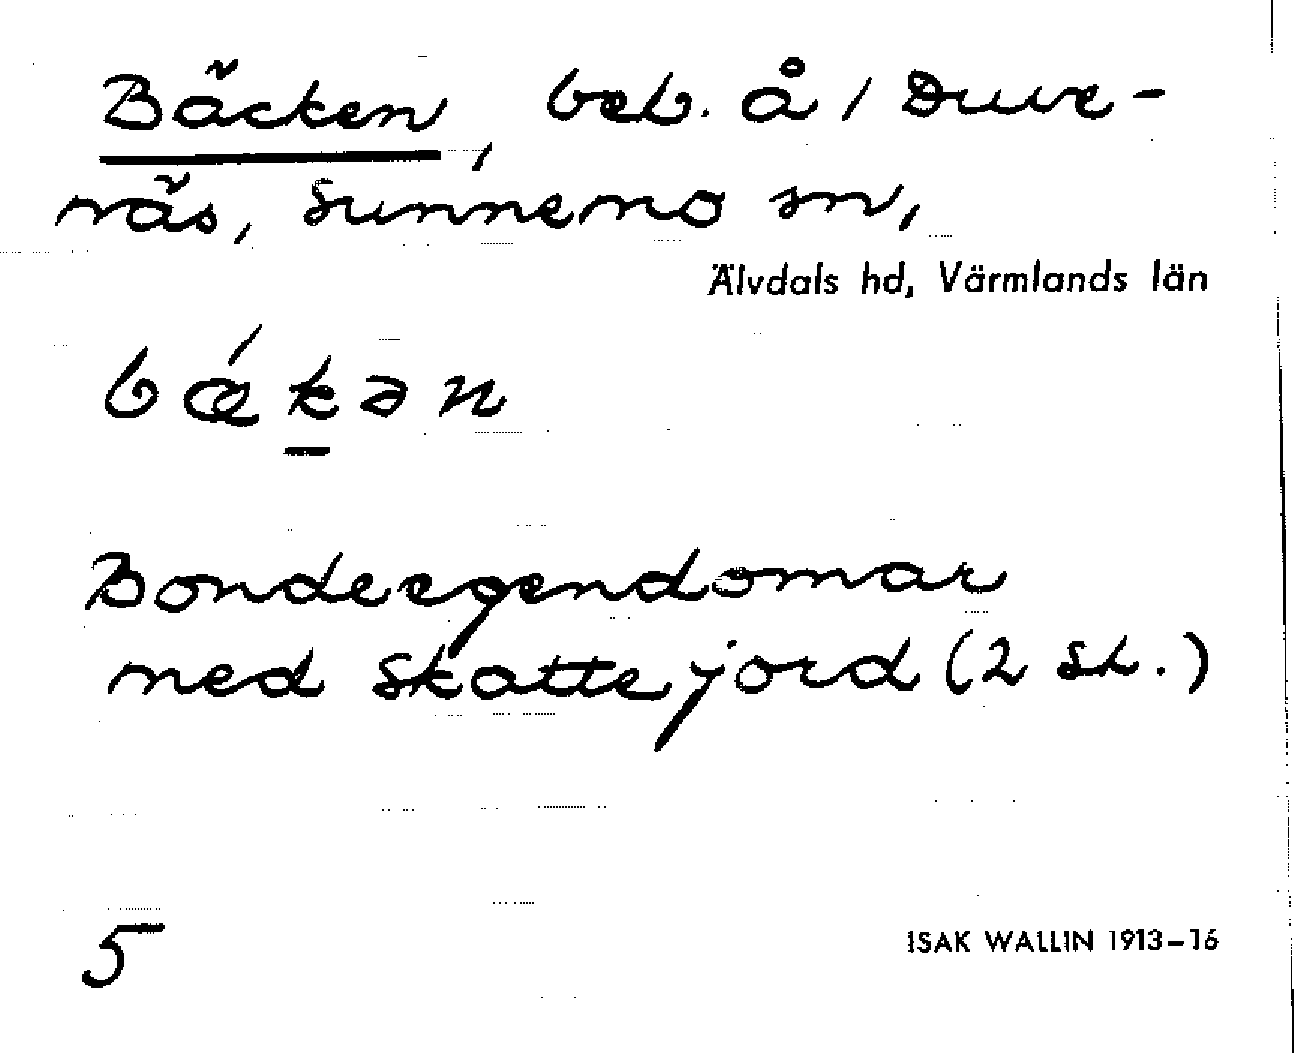 Bäcken, beb. å 1 Duve-
näs, Sunnemo sn,
Älvdals hd, Värmlands län
bǽkən
Bondeegendomar
med skattejord (2 sk.)
5
ISAK WALLIN 1913–16